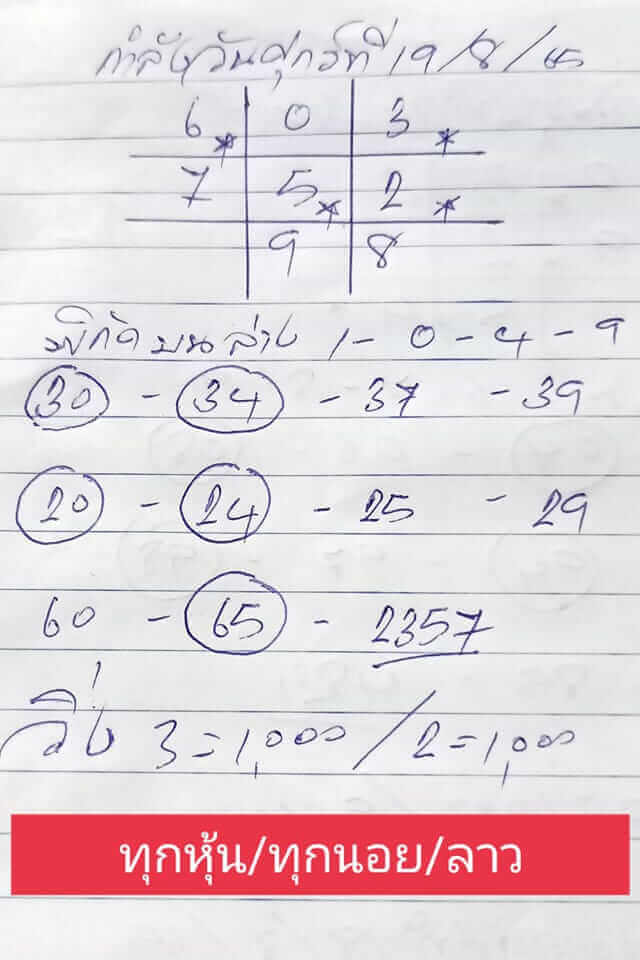 กำลังวันศุกร์ที่ 19/8/65
6* 0 3*
7 5* 2*
9 8
พิกัดบนล่าง 1-0-4-9
30 - 34 - 37 - 39
20 - 24 - 25 - 29
60 - 65 - 2357
วิ่ง 3=1,000/2=1,000
ทุกหุ้น/ทุกนอย/ลาว